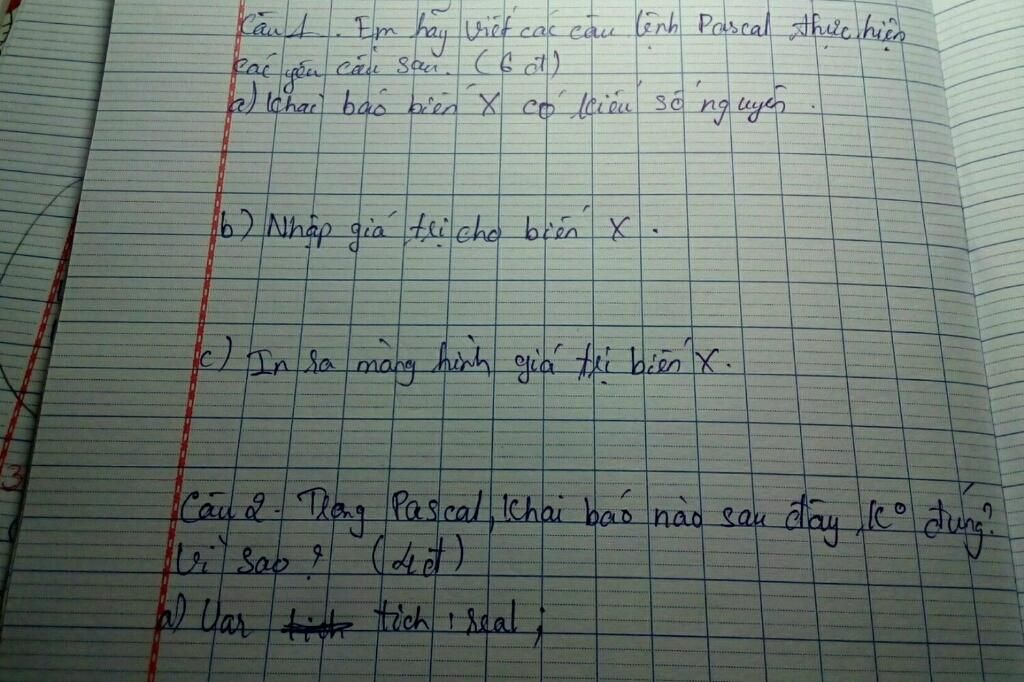 Câu 1. Em hãy viết các câu lệnh Pascal thực hiện
các yêu cầu sau. (6 đ)
a) Khai báo biến X có kiểu số nguyên.
b) Nhập giá trị cho biến X.
c) In ra màng hình giá trị biến X.
3
Câu 2. Trong Pascal, khai báo nào sau đây K° đúng?
Vì sao? (4đ)
a) Var tích : real;